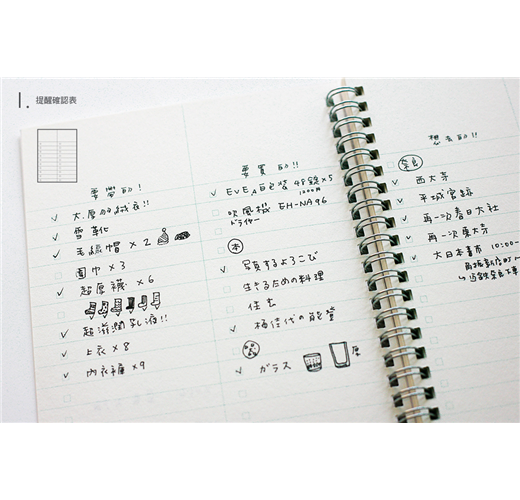 1. 提醒確認表
要帶的!
大厚羽絨衣!!
雪靴
毛線帽 × 2
圍巾 × 3
超厚襪 × 6
超滋潤乳液!!
上衣 × 8
內衣褲 × 9
要買的!!
EVE A白色裝 48錠 × 5
吹風機 EH-NA96
ドライヤー
本
写真するよろこび
生きるための料理
住む
桃佳代の能登
ガラス
厚
想去的!!
奈良
西大寺
平城宮跡
再一次春日大社
再一次東大寺
大日本書市 10:00~